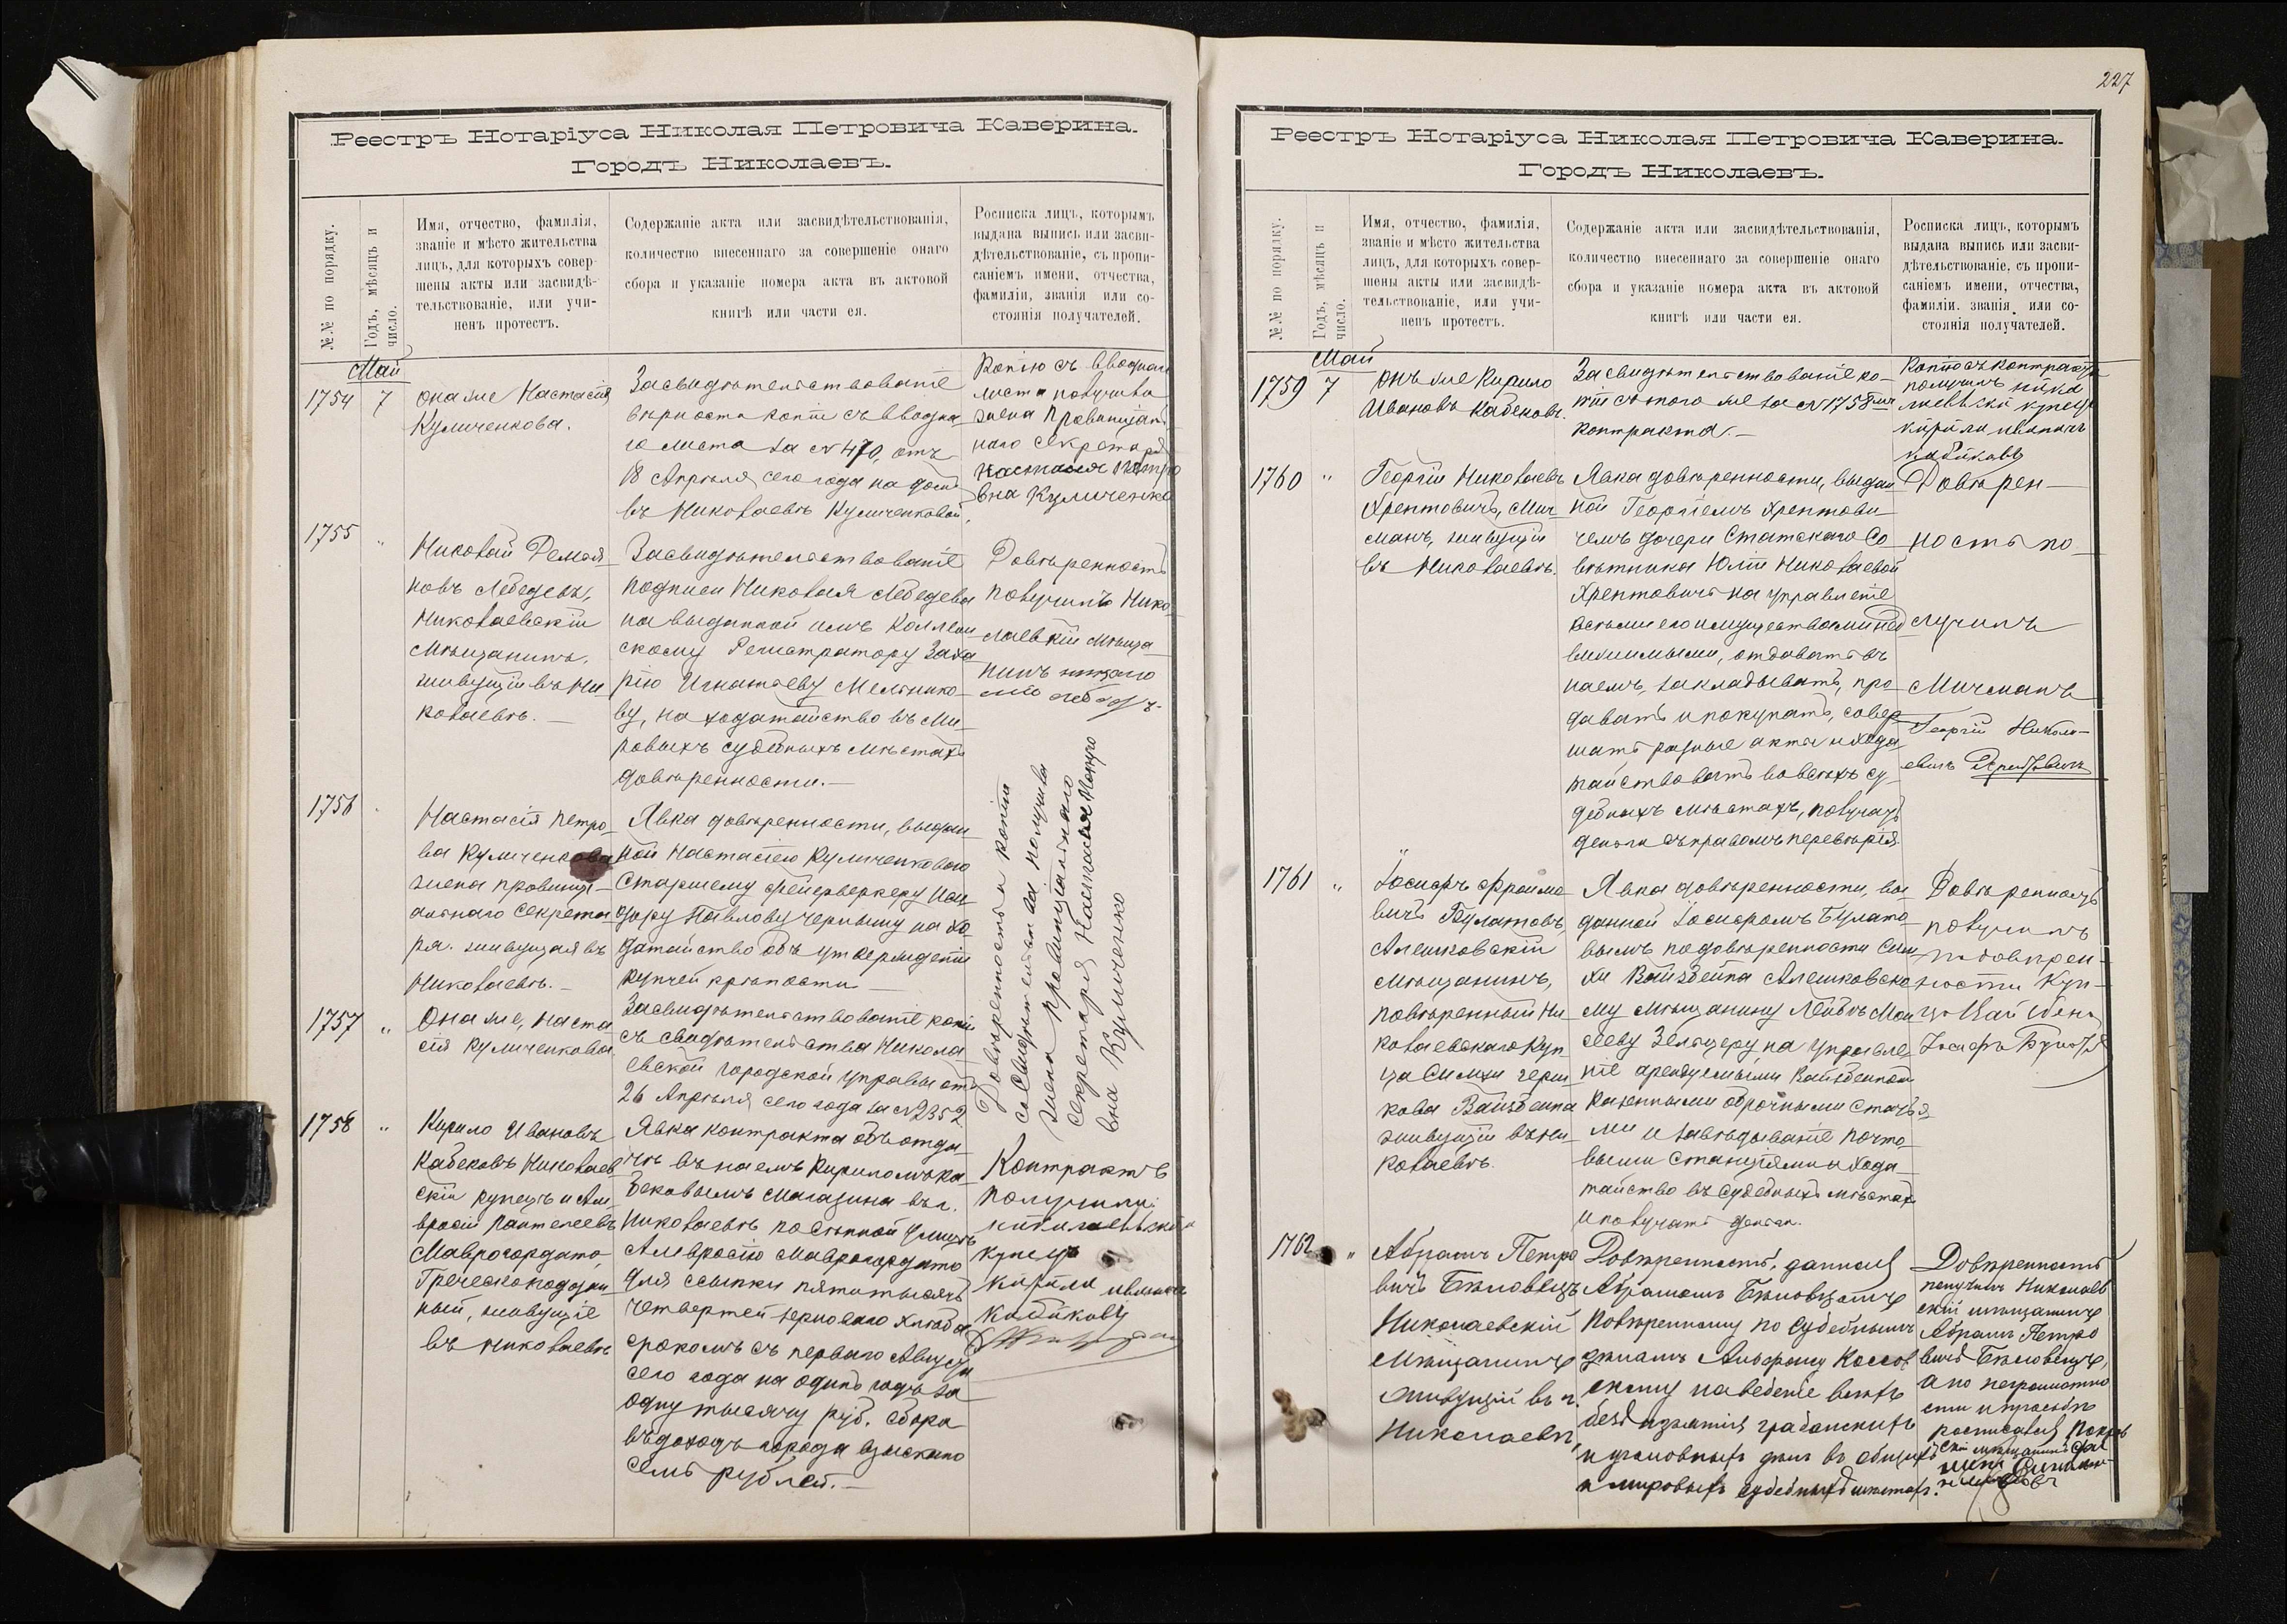 Реестръ Нотаріуса Николая Петровича Каверина.
Городъ Николаевъ.
№№ по порядку.
Годъ, мѣсяцъ и
число.
Имя, отчество, фамилія,
званіе и мѣсто жительства
лицъ, для которыхъ совер-
шены акты или засвидѣ-
тельствованіе, или учи-
ненъ протестъ.
Содержаніе акта или засвидѣтельствованія,
количество внесеннаго за совершеніе онаго
сбора и указаніе номера акта въ актовой
книгѣ или части ея.
Росписка лицъ, которымъ
выдана выпись или засви-
дѣтельствованіе, съ пропи-
саніемъ имени, отчества,
фамиліи, званія или со-
стоянія получателей.
Май
1754 7
Она же Настасія
Куличенкова.
Засвидѣтельствованіе
вѣрности копіи съ вводна-
го листа за № 470, отъ
18 Апрѣля сего года на домъ
въ Николаевѣ Куличенковой.
Копію съ вводнаго
листа получила
жена Провинціаль
наго секретаря
Настасія Петро
вна Куличенко
1755 "
Николай Демья-
новъ Лебедевъ,
Николаевскій
мѣщанинъ,
живущій въ Ни
колаевѣ.
Засвидѣтельствованіе
подписи Николая Лебедева
на выданной имъ Коллеж
скому Регистратору Заха
рію Игнатьеву Мельнико-
ву, на ходатайство въ Ми-
ровыхъ судебныхъ мѣстахъ
довѣренности.
Довѣренность
получилъ Нико-
лаевкій мѣща
нинъ
1756
Настасія Петро-
ва Куличенкова
жена провинці-
альнаго секрета
ря, живущая въ
Николаевѣ.
Явка довѣренности, выдан
ной Настасіею Куличенковою
Старшему фейерверкеру Иси
дору Павлову Чернышу на хо
датайство объ утвержденіи
купчей крѣпости
1757 "
Она же, Наста
сія Куличенкова
Засвидѣтельствованіе копіи
съ свидѣтельства Никола
евской городской управы отъ
26 Апрѣля сего года за № 2352
Довѣренность и копія
со свидѣтельства получила
жена провинціальнаго
секретаря Настасія Петро
вна Куличенко
1758 "
Кирило Ивановъ
Кабековъ Николаев
скій купецъ и Ам
вросій Пантелеевъ
Маврогордато,
Греческоподдан
ный, живущіе
въ Николаевѣ
Явка контракта объ отда
чѣ въ наемъ Кириломъ Ка
бековымъ магазина въ г.
Николаевѣ по Степной улицѣ
Амвросію Маврогордато
для ссыпки пяти тысячъ
четвертей зерноваго хлѣба
срокомъ съ перваго Августа
сего года на одинъ годъ за
одну тысячу руб. Сбора
въ доходъ города взыскано
семь рублей.
Контрактъ
получили
купецъ
Кирила
227
Реестръ Нотаріуса Николая Петровича Каверина.
Городъ Николаевъ.
№№ по порядку.
Годъ, мѣсяцъ и
число.
Имя, отчество, фамилія,
званіе и мѣсто жительства
лицъ, для которыхъ совер-
шены акты или засвидѣ-
тельствованіе, или учи-
ненъ протестъ.
Содержаніе акта или засвидѣтельствованія,
количество внесеннаго за совершеніе онаго
сбора и указаніе номера акта въ актовой
книгѣ или части ея.
Росписка лицъ, которымъ
выдана выпись или засви-
дѣтельствованіе, съ пропи-
саніемъ имени, отчества,
фамиліи, званія или со-
стоянія получателей.
Май
1759 7
Онъ же Кирило
Ивановъ Кабековъ.
Засвидѣтельствованіе ко-
піи съ того же за № 1758
контракта.
Копію съ контракта
получилъ нико
лаевьскій купецъ
кирила
1760 "
Георгій Николаевъ
Хрептовичъ, Мич
манъ, живущій
въ Николаевѣ.
Явка довѣренности, выдан
ной Георгіемъ Хрептови
чемъ дочери Статскаго Со
вѣтника Юліи Николаевой
Хрептовичъ на управленіе
всѣмъ его имуществомъ нед
вижимымъ, отдавать въ
наемъ, закладывать, про
давать и покупать, совер
шать разные акты и хода
тайствовать во всѣхъ су
дебныхъ мѣстахъ, получать
деньги съ правомъ перевѣрія
Довѣрен-
ность по-
лучилъ
Мичманъ
Георгій Никола-
евичъ Хрептовичъ
1761 "
Іосифъ Фраимо
вичъ Булатовъ,
Алешковскій
мѣщанинъ,
повѣренный Ни
колаевскаго куп
ца Симхи Герш
кова Вайзбейна
живущій въ Ни
колаевѣ.
Явка довѣренности, вы
данной Іосифомъ Булато
вымъ по довѣренности Сим
хи Вайзбейна Алешковско
му мѣщанину Лейбѣ Мои
сееву Зельцеру, на управле
ніе арендуемыми Вайзбейномъ
казенными оброчными статья
ми и завѣдываніе почто
выми станціями и хода
тайство въ судебныхъ мѣстахъ
и получать деньги.
Довѣренность
получилъ
по довѣрен-
ности Куп-
ца Вайзбена
Іосифъ
1762 "
Абрамъ Петро
вичъ Бѣловецъ
Николаевскій
мѣщанинъ
живущій въ г.
Николаевѣ,
Довѣренность, данная
Абрамомъ Бѣловцомъ
Повѣренному по судебнымъ
дѣламъ Альфонсу Коссов
скому на веденіе всѣхъ
безъ изъятія гражданскихъ
и уголовныхъ дѣлъ въ общихъ
и мировыхъ судебныхъ мѣстахъ.
Довѣренность
получилъ Николаев
скій мѣщанинъ
Абрамъ Петро
вичъ Бѣловецъ,
а по неграмотно
сти и просьбѣ
росписался